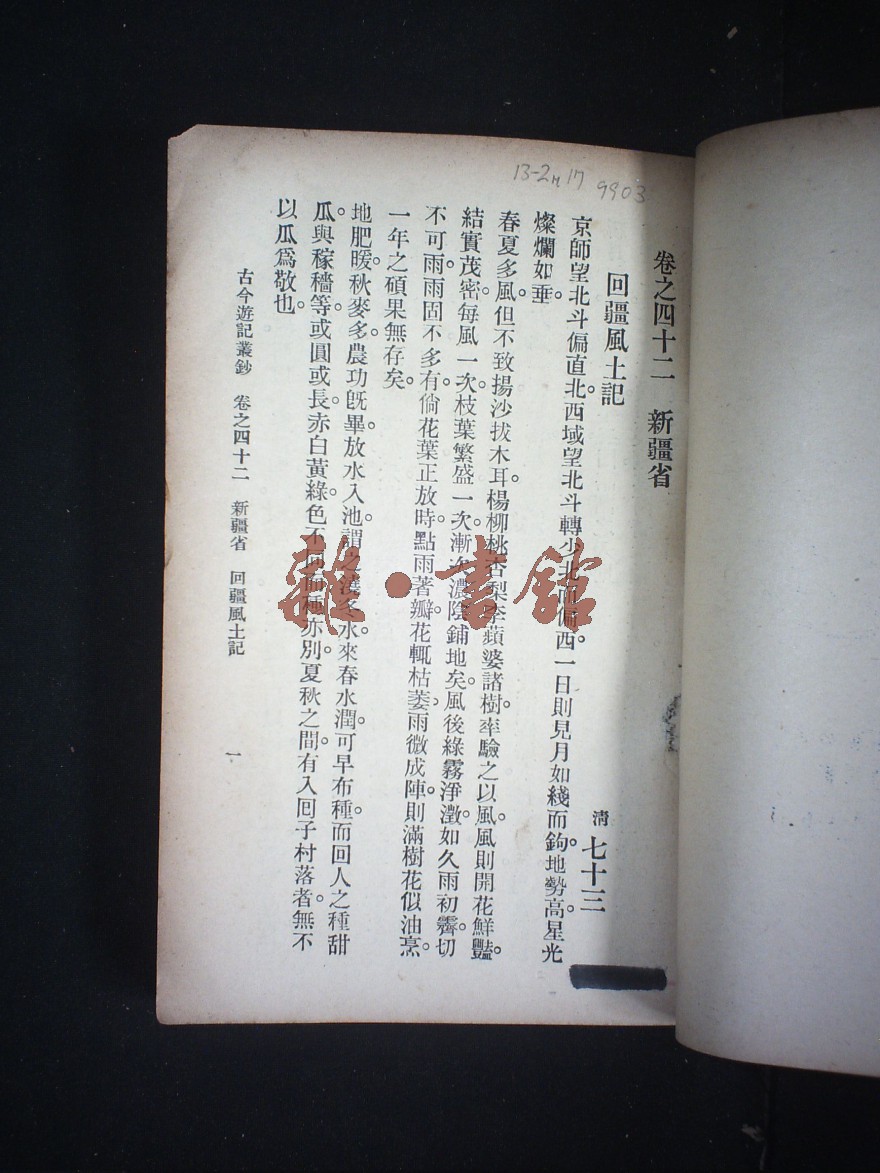 13-2 17 9903
卷之四十二 新疆省
回疆風土記
清 七十三
京師望北斗偏直北。西域望北斗轉少北而偏西。一日則見月如綫而鉤。地勢高。星光
燦爛如垂。
春夏多風。但不致揚沙拔木耳。楊柳桃杏梨李蘋婆諸樹。率驗之以風。風則開花鮮豔。
結實茂密。每風一次。枝葉繁盛一次。漸次濃陰鋪地矣。風後綠霧淨澂。如久雨初霽。切
不可雨。雨固不多。有倘花葉正放時。點雨著瓣。花輒枯萎。雨微成陣。則滿樹花似油烹。
一年之碩果無存矣。
地肥暖。秋麥多。農功旣畢。放水入池。謂之澆冬水。來春水潤。可早布種。而回人之種甜
瓜。與稼穡等。或圓或長。赤白黃綠。色不同而種亦別。夏秋之間。有入囘子村落者。無不
以瓜爲敬也。
古今遊記叢鈔 卷之四十二 新疆省 回疆風土記 一
雜·書館